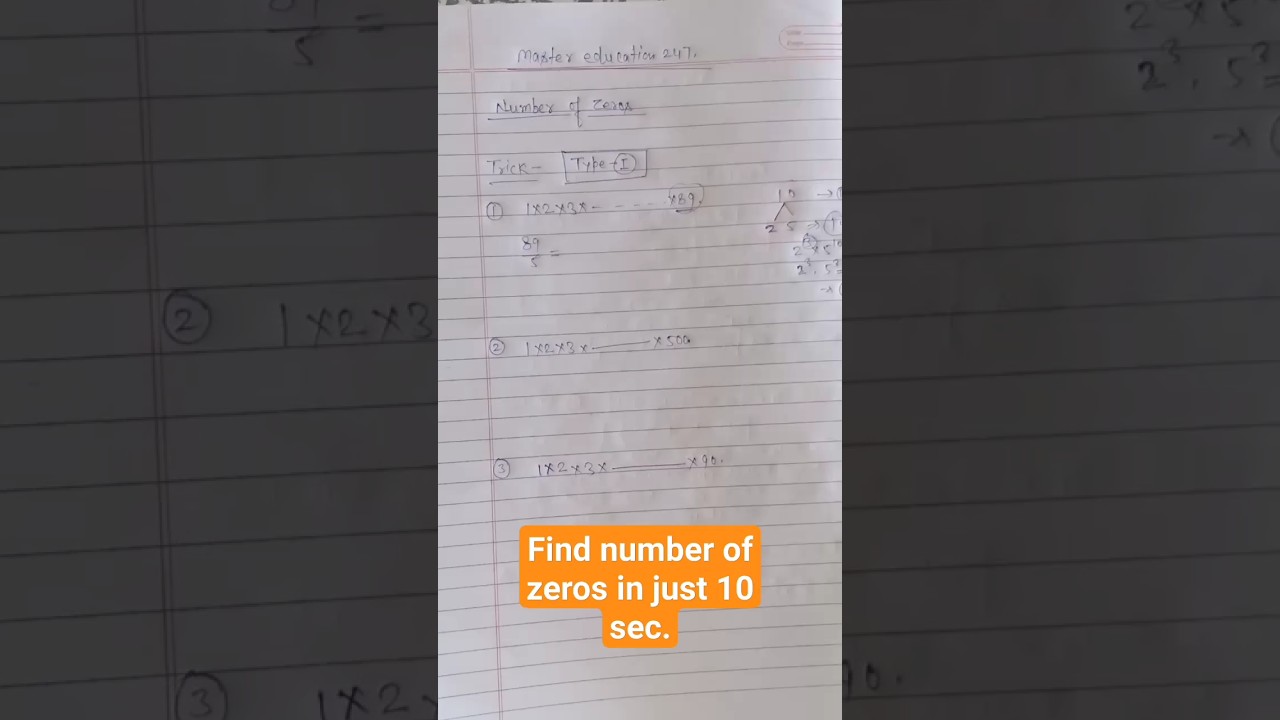 Master education 247.
Number of Zeros
Trick- Type-I
① 1x2x3x- - - - - x89.
10
2 5
89/5 =
② 1x2x3x———x500
③ 1x2x3x———x90.
Find number of
zeros in just 10
sec.